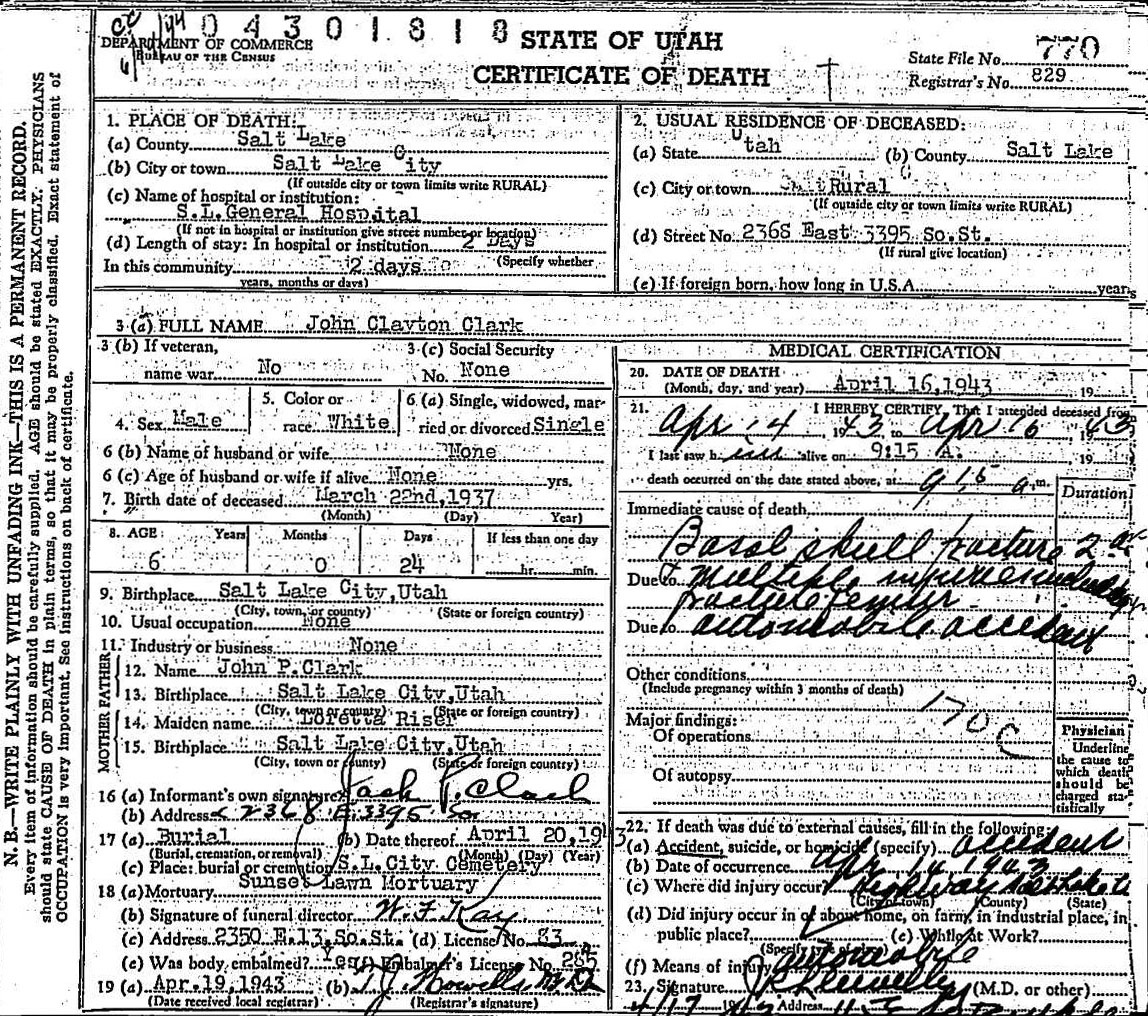 N.B.—WRITE PLAINLY WITH UNFADING INK—THIS IS A PERMANENT RECORD.
Every item of information should be carefully supplied. AGE should be stated EXACTLY. PHYSICIANS
should state CAUSE OF DEATH in plain terms, so that it may be properly classified. Exact statement of
OCCUPATION is very important. See instructions on back of certificate.
04301818
DEPARTMENT OF COMMERCE
BUREAU OF THE CENSUS
STATE OF UTAH
CERTIFICATE OF DEATH
State File No. 770
Registrar's No. 829
1. PLACE OF DEATH:
(a) County Salt Lake
(b) City or town Salt Lake City
(If outside city or town limits write RURAL)
(c) Name of hospital or institution:
S.L.General Hospital
(If not in hospital or institution give street number or location)
(d) Length of stay: In hospital or institution 2 Days
(Specify whether
In this community 2 days
years, months or days)
2. USUAL RESIDENCE OF DECEASED:
(a) State Utah (b) County Salt Lake
(c) City or town Rural
(If outside city or town limits write RURAL)
(d) Street No. 2368 East 3395 So.St.
(If rural give location)
(e) If foreign born, how long in U.S.A. years
3 (a) FULL NAME John Clayton Clark
3 (b) If veteran, name war No
3 (c) Social Security No. None
4. Sex Male
5. Color or race White
6 (a) Single, widowed, married or divorced Single
6 (b) Name of husband or wife None
6 (c) Age of husband or wife if alive None yrs.
7. Birth date of deceased March 22nd,1937
(Month) (Day) Year)
8. AGE Years Months Days If less than one day
6 0 24 hr. min.
9. Birthplace Salt Lake City,Utah
(City, town, or county) (State or foreign country)
10. Usual occupation None
11. Industry or business None
FATHER
12. Name John P.Clark
13. Birthplace Salt Lake City,Utah
(City, town or county) (State or foreign country)
MOTHER
14. Maiden name Loretta Riser
15. Birthplace Salt Lake City,Utah
(City, town or county) (State or foreign country)
16 (a) Informant's own signature Jack P. Clark
(b) Address 2368 E. 3395 So
17 (a) Burial (b) Date thereof April 20,1943
(Burial, cremation, or removal) (Month) (Day) (Year)
(c) Place: burial or cremation S.L. City Cemetery
18 (a) Mortuary Sunset Lawn Mortuary
(b) Signature of funeral director W. F. Kay
(c) Address 2350 E.13.So.St. (d) License No. 33
(e) Was body embalmed? Yes (f) Embalmer's License No. 285
19 (a) Apr.19,1943 (b) T.J. Howells M.D.
(Date received local registrar) (Registrar's signature)
MEDICAL CERTIFICATION
20. DATE OF DEATH
(Month, day, and year) April 16,1943 19
21. I HEREBY CERTIFY, That I attended deceased from
Apr 14 1943, to Apr 16 1943
I last saw him alive on 9:15 A. 19
death occurred on the date stated above, at 9:15 a.m.
Duration
Immediate cause of death
Basal skull fracture 2 da
Due to multiple injuries including
fracture femur
Due to automobile accident
Other conditions
(Include pregnancy within 3 months of death)
170 C
Major findings:
Of operations
Of autopsy
Physician
Underline the cause to which death should be charged statistically
22. If death was due to external causes, fill in the following:
(a) Accident, suicide, or homicide (specify) accident
(b) Date of occurrence Apr 14 1943
(c) Where did injury occur? Highway Salt Lake
(City or town) (County) (State)
(d) Did injury occur in or about home, on farm, in industrial place, in
public place? (e) While at Work?
(Specify type of place)
(f) Means of injury automobile
23. Signature (M.D. or other)
4/17 1943 Address